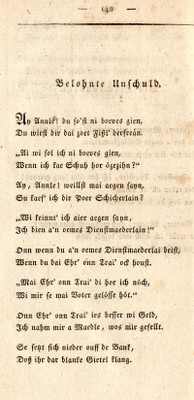 — 142 —
Belohnte Unschuld.
Ay Annle! du so'st ni boeves gien,
Du wießt dir dai zoet Fißl' derfreán.
"Ai wi sol ich ni boeves gien,
Wenn ich kae Schuh hor ózezihn?"
Ay, Aynle! weillst mai aegen sayn,
Su karf' ich dir Poer Schicherlain?
"Wi keinnt' ich aier aegen sayn,
Jch bien a'n oemes Dienstmaederlain!"
Dnn wenn du a'n oemes Dienstmaederlai beist,
Wenn du dai Ehr' onn Trai' ock houst.
"Mai Ehr' onn Trai' di hoe ich nóch,
Wi mir se mai Voter gelösse hót."
Dnn Ehr' onn Trai' ies besser wi Geld,
Jch nahm mir a Maedle, wos mir gefellt.
Se setzt sich nieder uff de Bank,
Doß ihr dar blanke Gietel klang.